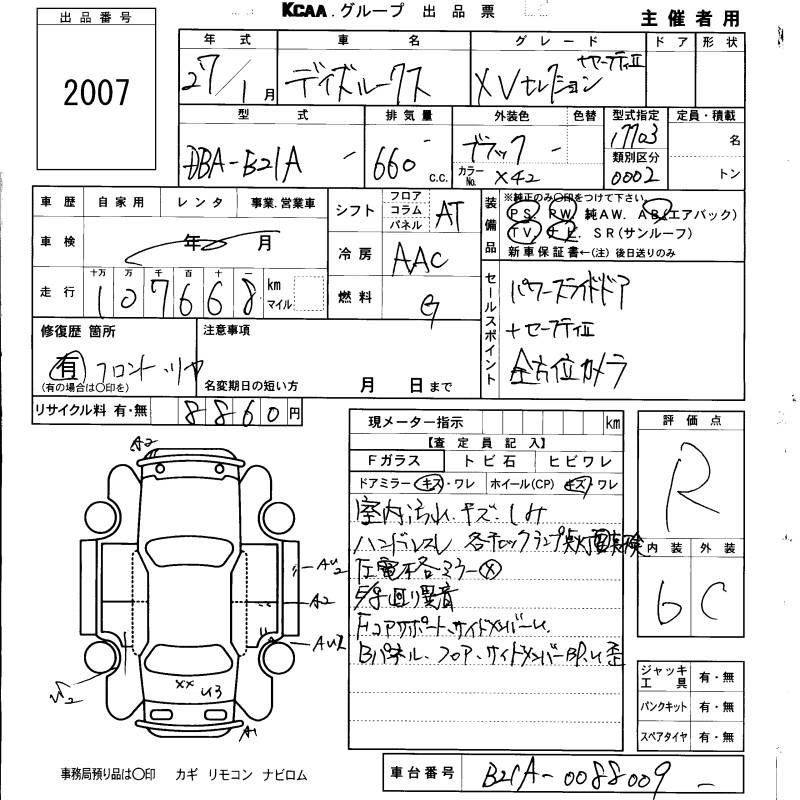 KCAA.グループ 出品票
主催者用
出品番号
2007
年式 車名 グレード ドア 形状
27/1月 デイズルークス XVセレクション +セーフティⅡ
型式 排気量 外装色 色替 型式指定 定員・積載
DBA-B21A 660 c.c. ブラック 17703 名
カラーNo. X42 類別区分 0002 トン
車歴 自家用 レンタ 事業.営業車
車検 年 月
走行 十万 万 千 百 十 一
107668 km マイル
シフト フロア コラム パネル AT
冷房 AAC
燃料 G
装備品 ※純正のみ〇印をつけて下さい
PS. PW. 純AW. AB(エアバック)
TV. ナビ. SR(サンルーフ)
新車保証書←(注) 後日送りのみ
セールスポイント
パワースライドドア
+セーフティⅡ
全方位カメラ
修復歴 箇所 注意事項
有 フロント・リヤ
(有の場合は〇印を) 名変期日の短い方 月 日まで
リサイクル料 有・無 8860円
現メーター指示 km
【査定員記入】
Fガラス トビ石 ヒビワレ
ドアミラー キズ・ワレ ホイール(CP) キズ・ワレ
室内汚れ.キズ.しみ
ハンドルスレ
左電格ミラー✕
回り異音
Fコアサポート、サイドメンバーU.
Bパネル、フロア、サイドメンバーBP.U 歪
評価点
R
内装 外装
6 C
ジャッキ工具 有・無
パンクキット 有・無
スペアタイヤ 有・無
A2
AU2
A2
U2
XX U3
A1
事務局預り品は〇印 カギ リモコン ナビロム
車台番号 B21A-0088009